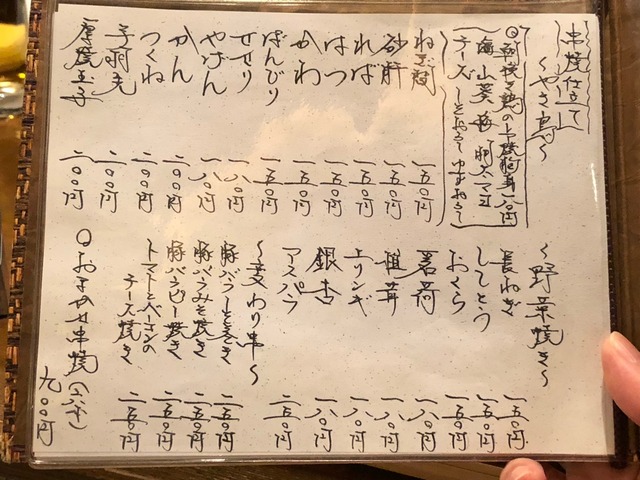 串焼仕立て
〜やき鳥〜
朝挽き鶏の上焼胸身 一八〇円
山葵 梅 明太マヨ
チーズ しそおろし ゆずおろし
ねぎ間 一五〇円
砂肝 一五〇円
ればー 一五〇円
はつ 一五〇円
かわ 一五〇円
ぼんじり 一五〇円
せせり 一八〇円
やげん 一八〇円
かん 二〇〇円
つくね 二〇〇円
手羽先 二〇〇円
厚焼玉子 二〇〇円
〜野菜焼き〜
長ねぎ 一五〇円
ししとう 一五〇円
おくら 一五〇円
茗荷 一八〇円
椎茸 一八〇円
エリンギ 一八〇円
銀杏 一八〇円
アスパラ 二五〇円
〜変わり串〜
豚バラしそまき 二五〇円
豚バラみそ焼き 二五〇円
豚バラピー焼き 二五〇円
トマトとベーコンの
チーズ焼き 二五〇円
◎おまかせ串焼(六本)
九〇〇円